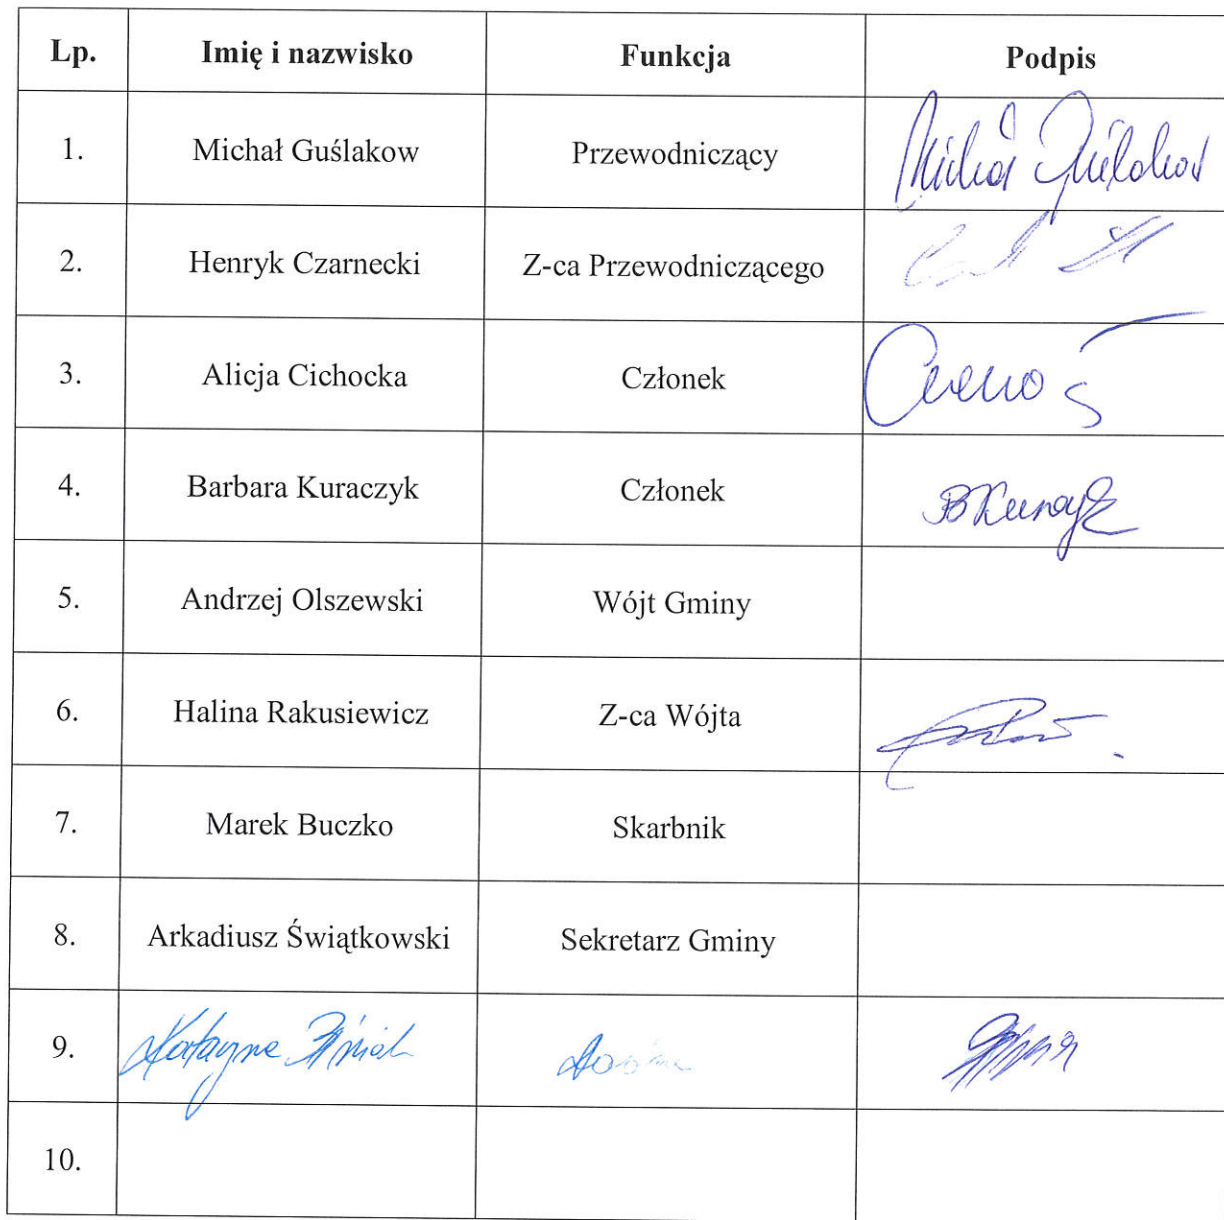 Lp. Imię i nazwisko Funkcja Podpis
1. Michał Guślakow Przewodniczący Michał Guślakow
2. Henryk Czarnecki Z-ca Przewodniczącego
3. Alicja Cichocka Członek
4. Barbara Kuraczyk Członek
5. Andrzej Olszewski Wójt Gminy
6. Halina Rakusiewicz Z-ca Wójta
7. Marek Buczko Skarbnik
8. Arkadiusz Świątkowski Sekretarz Gminy
9. Katarzyna
10.